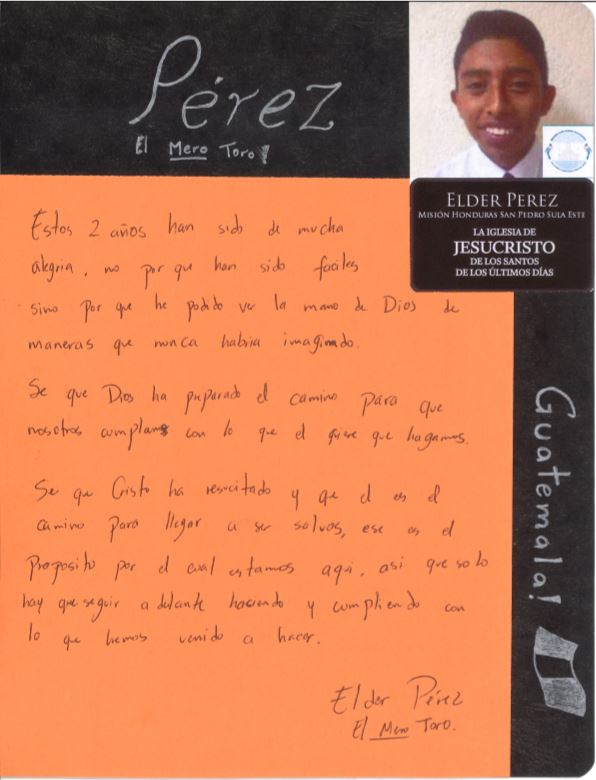 Pérez
El Mero Toro!
ELDER PEREZ
MISIÓN HONDURAS SAN PEDRO SULA ESTE
LA IGLESIA DE
JESUCRISTO
DE LOS SANTOS
DE LOS ÚLTIMOS DÍAS
Estos 2 años han sido de mucha
alegria, no por que han sido faciles
sino por que he podido ver la mano de Dios de
maneras que nunca habria imaginado.
Se que Dios ha preparado el camino para que
nosotros cumplams con lo que el quiere que hagamos.
Se que Cristo ha resucitado y que el es el
camino para llegar a ser salvos, ese es el
Proposito por el cual estamos aqui, asi que solo
hay que seguir adelante haciendo y cumpliendo con
lo que hemos venido a hacer.
Elder Pérez
El Mero Toro.
Guatemala!